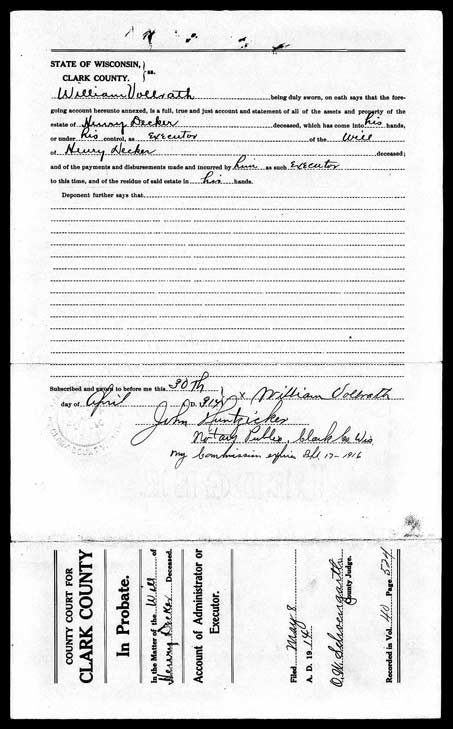 STATE OF WISCONSIN, } ss.
CLARK COUNTY.
William Vollrath being duly sworn, on oath says that the fore-
going account hereunto annexed, is a full, true and just account and statement of all of the assets and property of the
estate of Henry Decker deceased, which has come into his hands,
or under his control, as Executor of the Will
of Henry Decker deceased;
and of the payments and disbursements made and incurred by him as such Executor
to this time, and of the residue of said estate in his hands.
Deponent further says that
Subscribed and sworn to before me this 30th
day of April A. D. x William Vollrath
John Huntzicker
Notary Public, Clark Co. Wis
My Commission expires 17-1916
COUNTY COURT FOR
CLARK COUNTY
In Probate.
In the Matter of the Will of
Henry Decker Deceased.
Account of Administrator or
Executor.
Filed May 8
A. D. 19
O.W. Schoengarth
County Judge.
Recorded in Vol. 40 Page 524